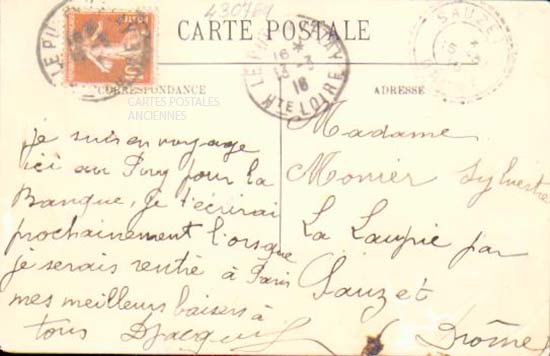 430781
CARTE POSTALE
LE PUY
16 *
13 - 3
16
Hte LOIRE
SAUZET
CORRESPONDANCE
ADRESSE
CARTES POSTALES
ANCIENNES
je suis en voyage
ici au Puy pour la
Banque, je t'écrirai
prochainement lorsque
je serais rentré à Paris
mes meilleurs baisers à
tous
Madame
Monier Sylvestre
La Laupie par
Sauzet
Drôme